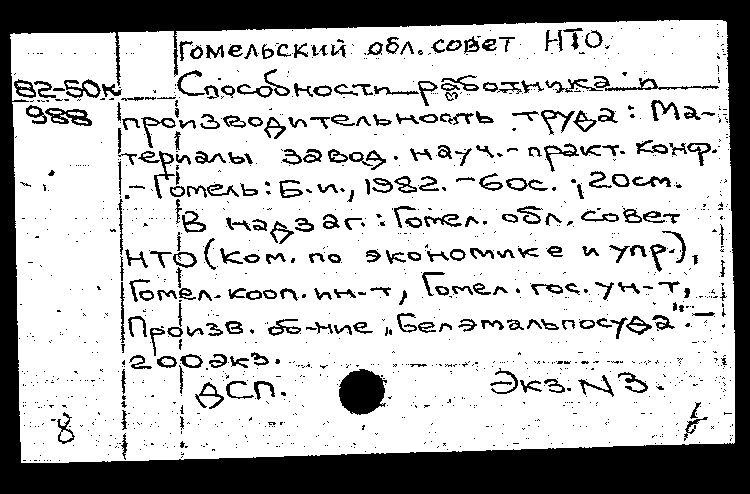 Гомельский обл. совет НТО.
82-50к Способности работника и
988 производительность труда: Ма-
териалы завод. науч.-практ. конф.
.- Гомель: Б.и., 1982. - 60с.; 20см.
В надзаг.: Гомел. обл. совет
НТО (ком. по экономике и упр.),
Гомел. кооп. ин-т, Гомел. гос. ун-т,
Произв. об-ние „Белэмальпосуда". -
200экз.
ДСП. Экз. N3.
8